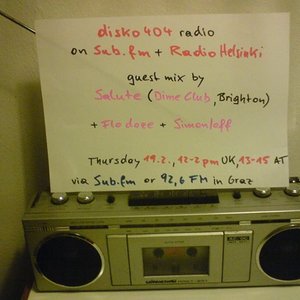 disko404 radio
on Sub.fm + Radio Helsinki
guest mix by
Salute (Dime Club, Brighton)
+ Flo doze + Simonloff
Thursday 19.2., 12-2 pm UK, 13-15 AT
via Sub.fm or 92,6 FM in Graz